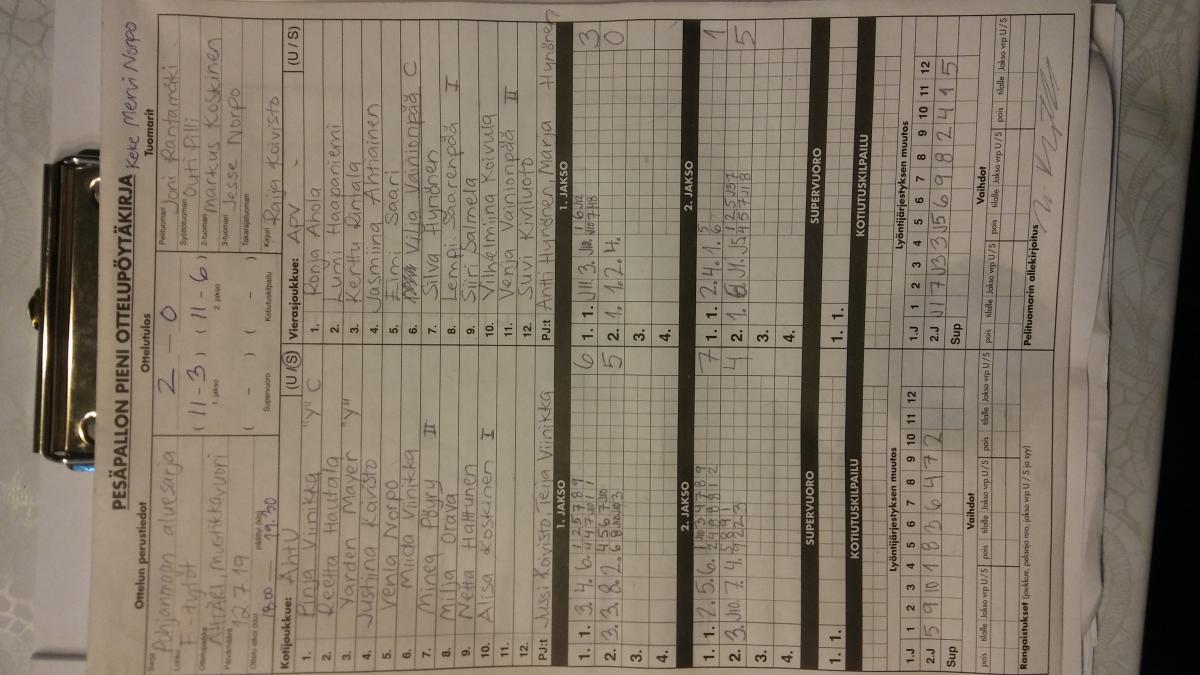 PESÄPALLON PIENI OTTELUPÖYTÄKIRJA Keke Mervi Norpo
Ottelun perustiedot
Sarja Pohjanmaan aluesarja
Lohko F-tytöt
Ottelupaikka Ähtäri, Mustikkavuori
Päivämäärä 12.7.19
Ottelu alkoi (klo) 18.00 päättyi (klo) 19.30
Ottelutulos
2 - 0
(11-3) (11-6)
1. jakso 2. jakso
( - ) ( - )
Supervuoro Kotiutuskilpailu
Tuomarit
Pelituomari Joni Rantamäki
Syöttötuomari Outi Pilli
2-tuomari Markus Koskinen
3-tuomari Jesse Norpo
Takarajatuomari
Kirjuri Raija Koivisto
Kotijoukkue: ÄhtU (U / S)
1. Pinja Viinikka "y" C
2. Reetta Hautala
3. Yarden Mayer "y"
4. Justiina Koivisto
5. Venla Norpo
6. Miida Viinikka
7. Minea Pöyry II
8. Milja Orava
9. Netta Hattunen
10. Alisa Koskinen I
11.
12.
PJ:t Jussi Koivisto Teija Viinikka
Vierasjoukkue: APV (U / S)
1. Ronja Ahola
2. Lumi Haapaniemi
3. Kerttu Rintala
4. Jasmiina Antiainen
5. Elmi Saari
6. Vilja Vainionpää C
7. Silva Hynönen
8. Lempi Saarenpää I
9. Siiri Salmela
10. Vilhelmiina Koivula
11. Venja Vainionpää II
12. Suvi Kiviluoto
PJ:t Antti Hynönen, Marja Hynönen
1. JAKSO
1. 1. 3. 4. 6. 6
2. 3. 3. 8. 2. 5
3.
4.
1. JAKSO
1. 1. J11. 3. 3
2. 1. 1. 2. 4. 0
3.
4.
2. JAKSO
1. 1. 2. 5. 6. 7
2. 3. J10. 7. 4. 4
3.
4.
2. JAKSO
1. 1. 2. 4. 1. 6. 1
2. 1. 5
3.
4.
SUPERVUORO
1. 1.
SUPERVUORO
1. 1.
KOTIUTUSKILPAILU
KOTIUTUSKILPAILU
Lyöntijärjestyksen muutos
1.J 1 2 3 4 5 6 7 8 9 10 11 12
2.J 5 9 10 1 8 3 6 4 7 2
Sup
Lyöntijärjestyksen muutos
1.J 1 2 3 4 5 6 7 8 9 10 11 12
2.J
Sup
Vaihdot
pois tilalle Jakso vrp U/S pois tilalle Jakso vrp U/S pois tilalle Jakso vrp U/S
Vaihdot
pois tilalle Jakso vrp U/S pois tilalle Jakso vrp U/S pois tilalle Jakso vrp U/S
Rangaistukset (joukkue, pelaaja nro, jakso vrp U / S ja syy)
Pelituomarin allekirjoitus